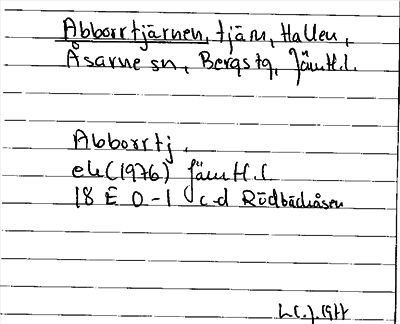 Abborrtjärnen, tjärn, Hallen,
Åsarne sn, Bergs tg, Jämtl.l.
Abborrtj.
ek (1976) Jämtl.l.
18 E 0-1 c-d Rödbäckåsen